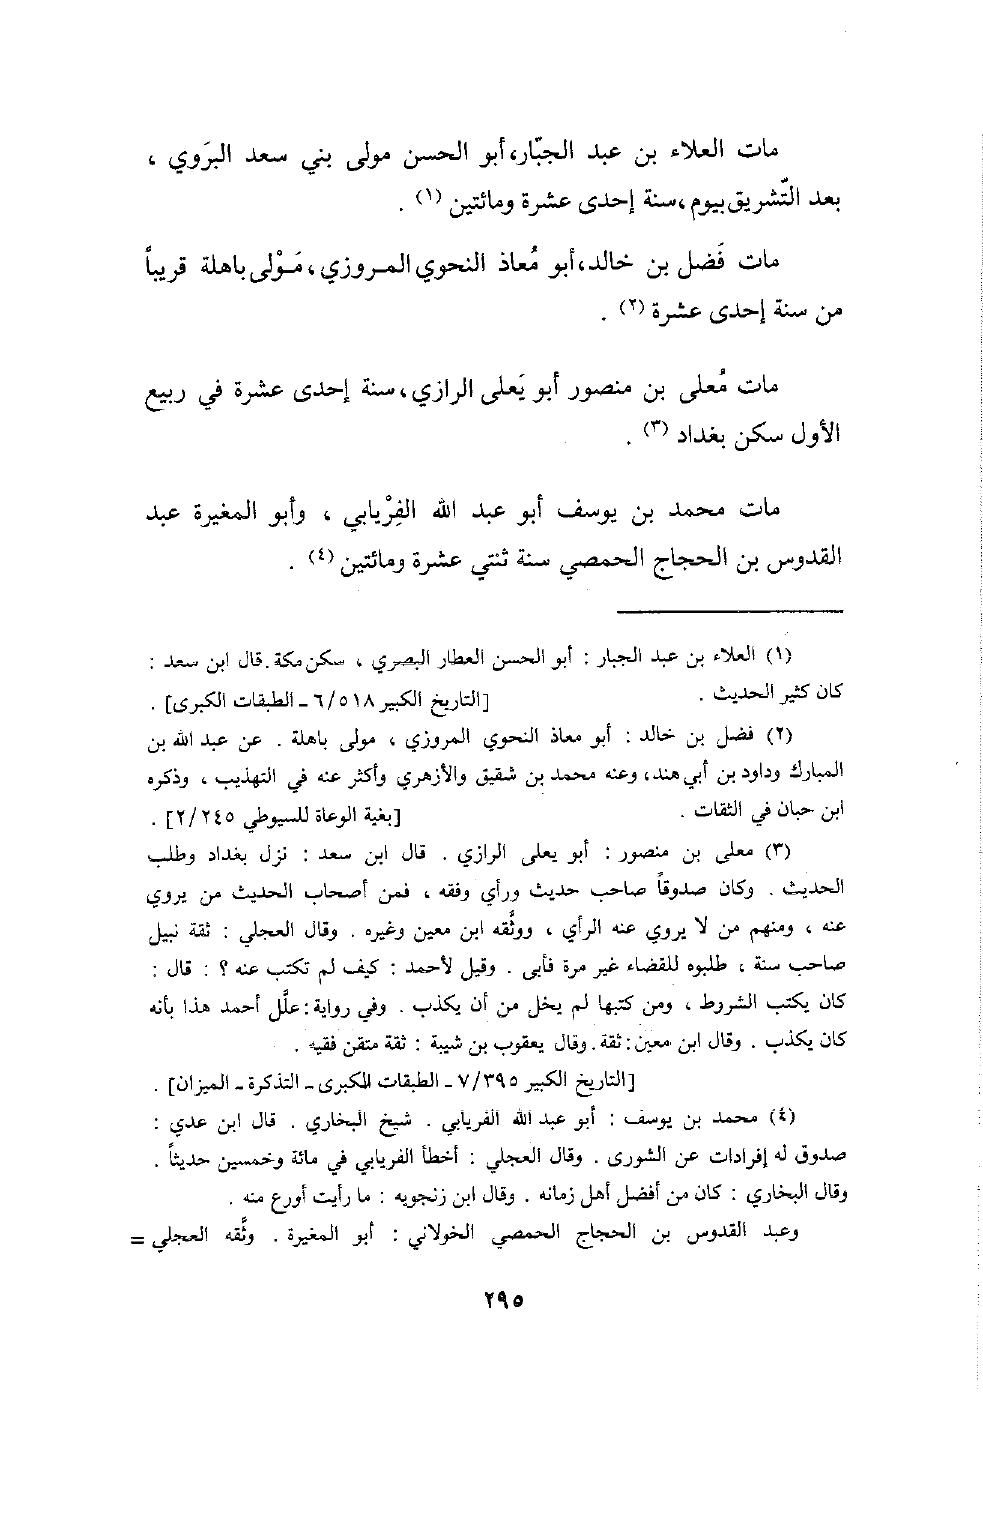 مات العلاء بن عبد الجبّار، أبو الحسن مولى بني سعد البرَوي ،
بعد التّشريق بيوم ، سنة إحدى عشرة ومائتين (١) .
مات فَضل بن خالد، أبو مُعاذ النحوي المروزي ، مَوْلى باهلة قريباً
من سنة إحدى عشرة (٢) .
مات مُعلى بن منصور أبو يَعلى الرازي ، سنة إحدى عشرة في ربيع
الأول سكن بغداد (٣) .
مات محمد بن يوسف أبو عبد الله الفِرْيابي ، وأبو المغيرة عبد
القدوس بن الحجاج الحمصي سنة ثنتي عشرة ومائتين (٤) .
(١) العلاء بن عبد الجبار : أبو الحسن العطار البصري ، سكن مكة . قال ابن سعد :
كان كثير الحديث . [التاريخ الكبير ٦/٥١٨ - الطبقات الكبرى] .
(٢) فضل بن خالد : أبو معاذ النحوي المروزي ، مولى باهلة . عن عبد الله بن
المبارك وداود بن أبي هند، وعنه محمد بن شقيق والأزهري وأكثر عنه في التهذيب ، وذكره
ابن حبان في الثقات . [بغية الوعاة للسيوطي ٢/٢٤٥] .
(٣) معلى بن منصور : أبو يعلى الرازي . قال ابن سعد : نزل بغداد وطلب
الحديث . وكان صدوقاً صاحب حديث ورأي وفقه ، فمن أصحاب الحديث من يروي
عنه ، ومنهم من لا يروي عنه الرأي ، ووثَّقه ابن معين وغيره . وقال العجلي : ثقة نبيل
صاحب سنة ، طلبوه للقضاء غير مرة فأبى . وقيل لأحمد : كيف لم تكتب عنه ؟ : قال :
كان يكتب الشروط ، ومن كتبها لم يخل من أن يكذب . وفي رواية : علَّل أحمد هذا بأنه
كان يكذب . وقال ابن معين : ثقة . وقال يعقوب بن شيبة : ثقة متقن فقيه .
[التاريخ الكبير ٧/٣٩٥ - الطبقات الكبرى - التذكرة - الميزان] .
(٤) محمد بن يوسف : أبو عبد الله الفريابي . شيخ البخاري . قال ابن عدي :
صدوق له إفرادات عن الشورى . وقال العجلي : أخطأ الفريابي في مائة وخمسين حديثاً .
وقال البخاري : كان من أفضل أهل زمانه . وقال ابن زنجويه : ما رأيت أورع منه .
وعبد القدوس بن الحجاج الحمصي الخولاني : أبو المغيرة . وثَّقه العجلي =
٢٩٥